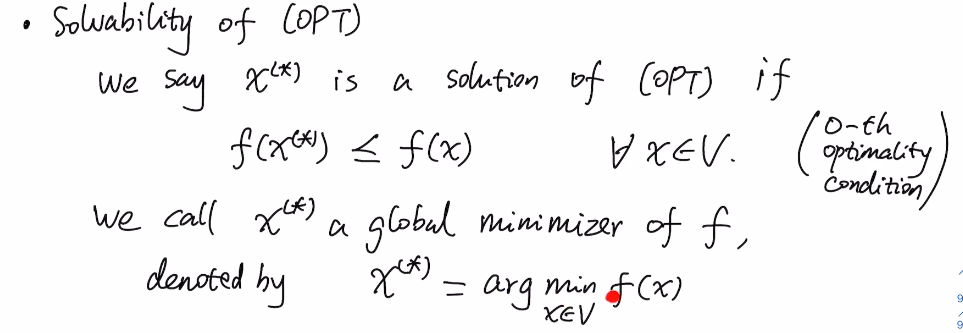 • Solvability of (OPT)
We say x^(*) is a solution of (OPT) if
f(x^(*)) ≤ f(x) ∀ x∈V. (0-th optimality condition)
We call x^(*) a global minimizer of f,
denoted by x^(*) = arg min_{x∈V} f(x)
9
9